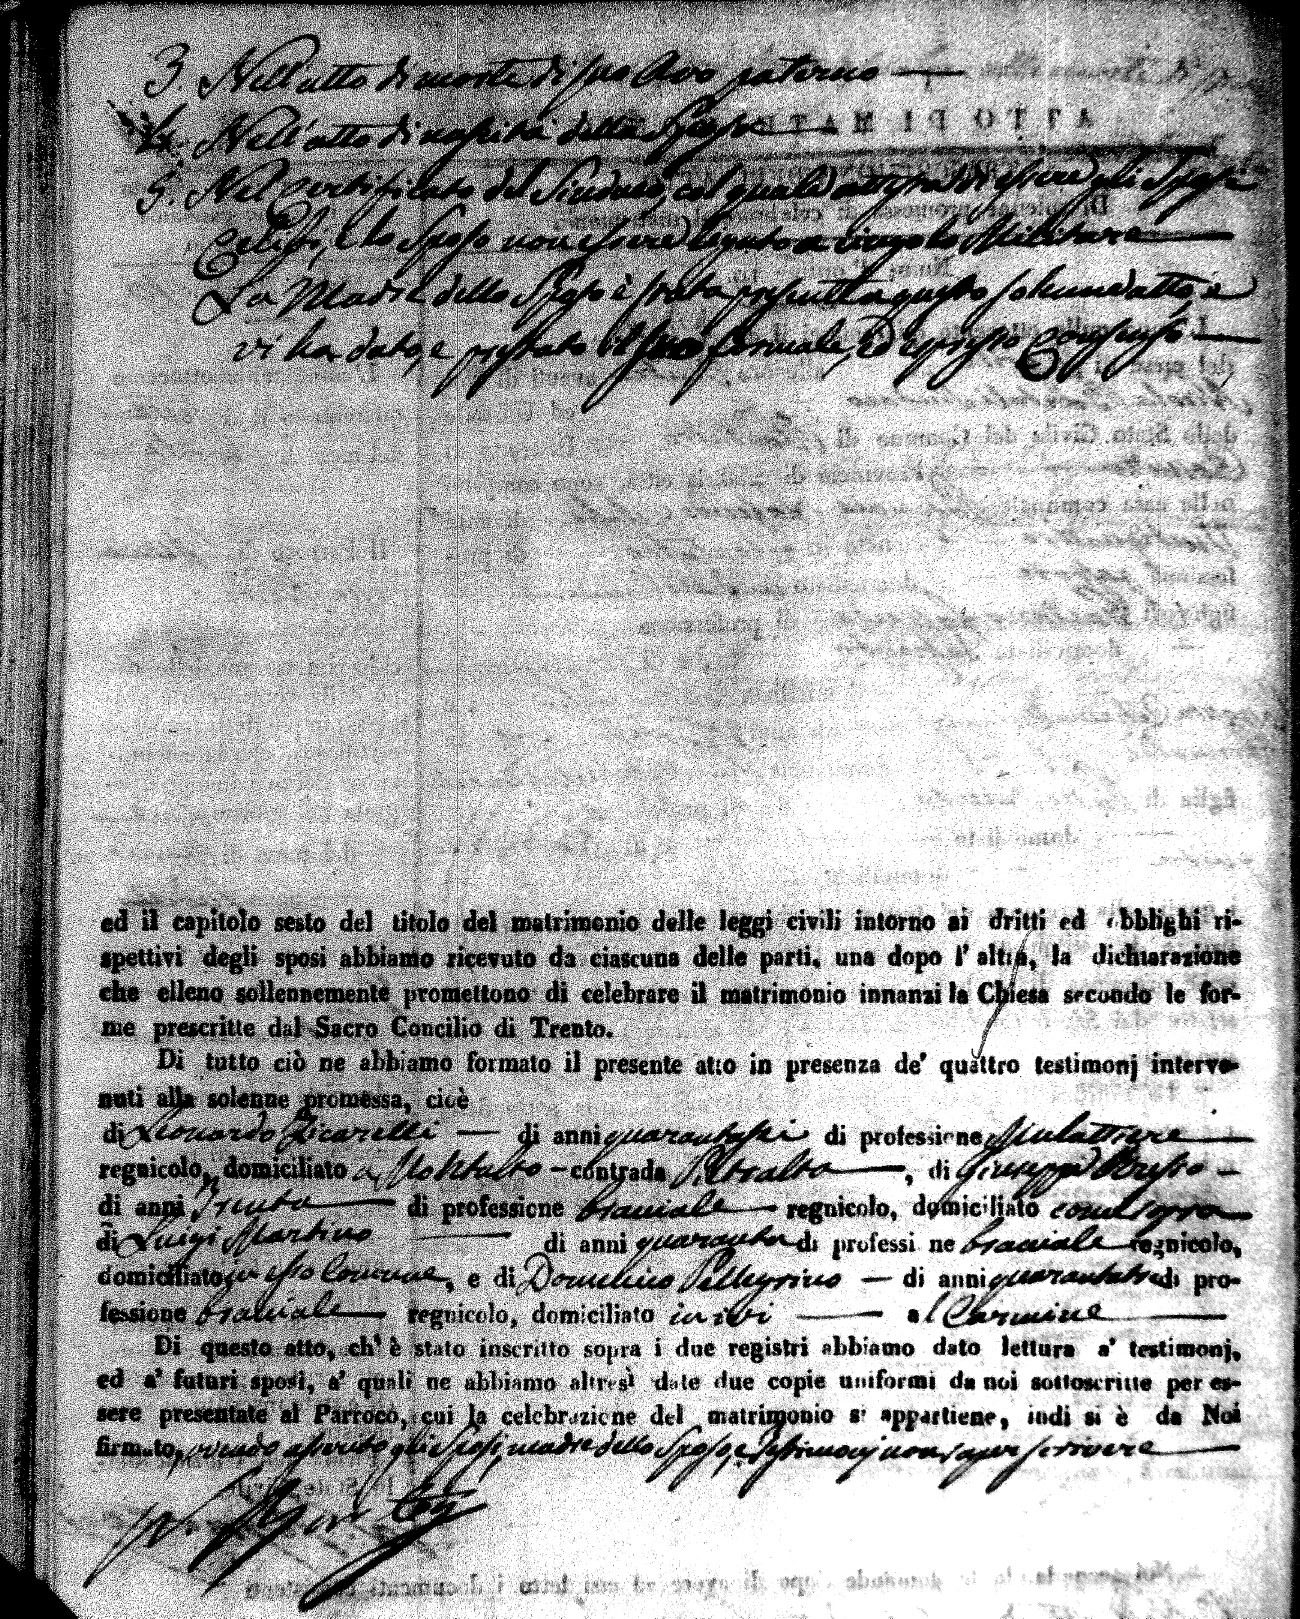 3. Nell'atto di morte di suo Avo paterno —
4. Nell'atto di nascita della Sposa —
5. Nel Certificato del Sindaco, col quale attesta di essere gli Sposi
Celibi, e lo Sposo non essere legato a vincolo Militare —
La Madre dello Sposo è stata presente a questo solenne atto, e
vi ha dato, e prestato il suo formale, ed espresso Consenso —
ed il capitolo sesto del titolo del matrimonio delle leggi civili intorno ai dritti ed obblighi ri-
spettivi degli sposi abbiamo ricevuto da ciascuna delle parti, una dopo l'altra, la dichiarazione
che elleno sollennemente promettono di celebrare il matrimonio innanzi la Chiesa secondo le for-
me prescritte dal Sacro Concilio di Trento.
Di tutto ciò ne abbiamo formato il presente atto in presenza de' quattro testimonj interve-
nuti alla solenne promessa, cioè
di Leonardo Zicarelli — di anni quarantasei di professione Mulattiere —
regnicolo, domiciliato a Montalto — contrada Petralta —, di Giuseppe —
di anni Trenta — di professione bracciale — regnicolo, domiciliato come sopra
di Luigi Martino — di anni quaranta di professi ne bracciale — regnicolo,
domiciliato in esso Comune, e di Domenico Pellegrino — di anni quarantatre di pro-
fessione bracciale — regnicolo, domiciliato in ivi — al Carmine —
Di questo atto, ch' è stato inscritto sopra i due registri abbiamo dato lettura a' testimonj,
ed a' futuri sposi, a' quali ne abbiamo altresì date due copie uniformi da noi sottoscritte per es-
sere presentate al Parroco, cui la celebrazione del matrimonio si appartiene, indi si è da Noi
firmato, avendo asserito gli Sposi, madre dello Sposo, e Testimonj non saper scrivere —